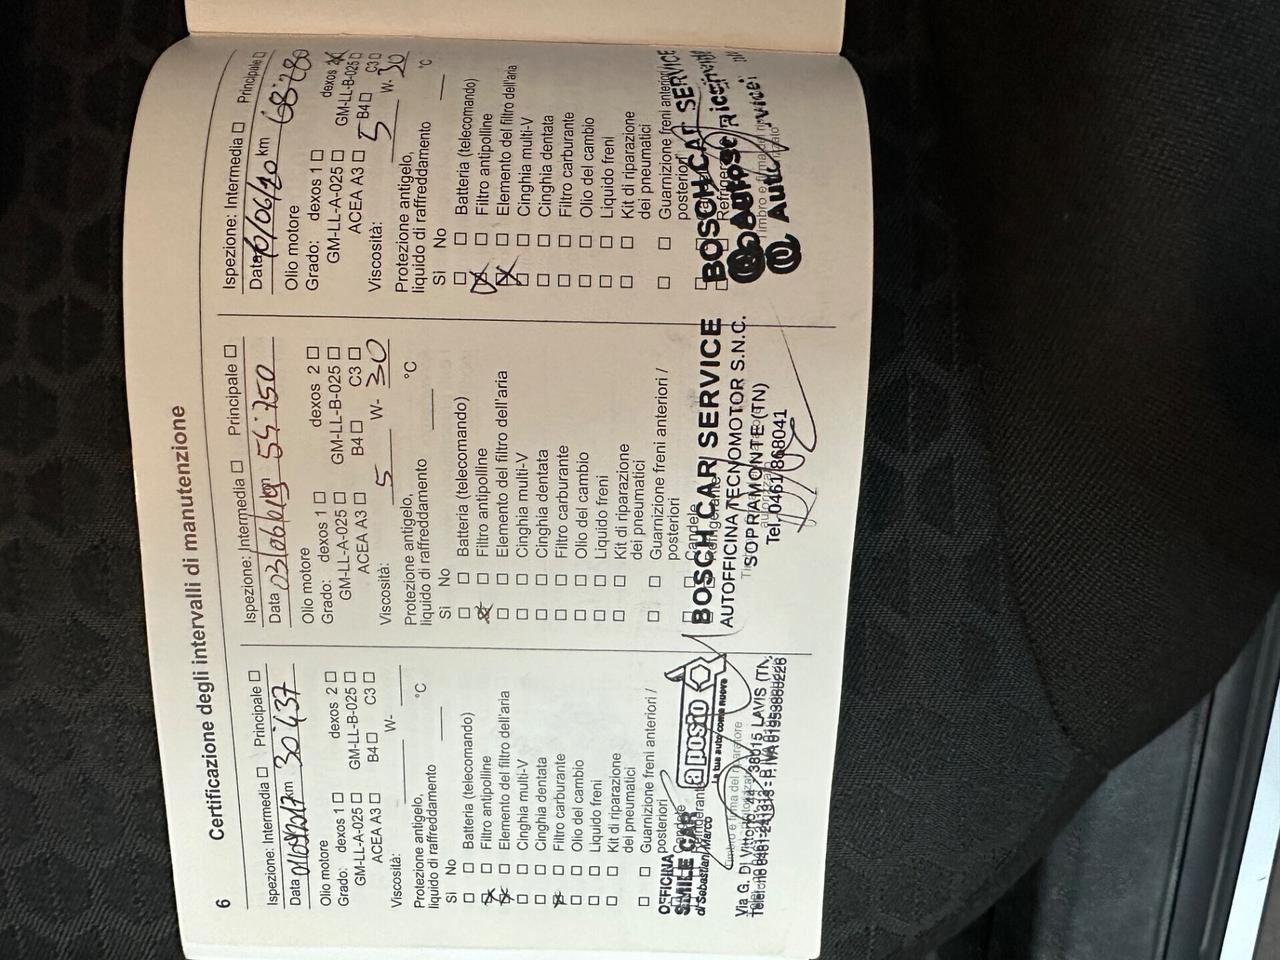 6
Certificazione degli intervalli di manutenzione
Ispezione: Intermedia ☐ Principale ☐
Data km 30.437
Olio motore
Grado: dexos 1 ☐ dexos 2 ☐
GM-LL-A-025 ☐ GM-LL-B-025 ☐
ACEA A3 ☐ B4 ☐ C3 ☐
Viscosità: W-
Protezione antigelo,
liquido di raffreddamento °C
Sì No
☐ ☐ Batteria (telecomando)
☒ ☐ Filtro antipolline
☒ ☐ Elemento del filtro dell'aria
☐ ☐ Cinghia multi-V
☐ ☐ Cinghia dentata
☒ ☐ Filtro carburante
☐ ☐ Olio del cambio
☐ ☐ Liquido freni
☐ ☐ Kit di riparazione
dei pneumatici
☐ ☐ Guarnizione freni anteriori /
posteriori
Candele
Refrigerante
Timbro e firma del riparatore
OFFICINA
SMILE CAR
di Sebastiani Marco
a posto
la tua auto come nuova
Via G. Di Vittorio, 38015 LAVIS (TN)
Ispezione: Intermedia ☐ Principale ☐
Data 03/06/19 km 54.750
Olio motore
Grado: dexos 1 ☐ dexos 2 ☐
GM-LL-A-025 ☐ GM-LL-B-025 ☐
ACEA A3 ☐ B4 ☐ C3 ☐
Viscosità: 5 W- 30
Protezione antigelo,
liquido di raffreddamento °C
Sì No
☐ ☐ Batteria (telecomando)
☒ ☐ Filtro antipolline
☐ ☐ Elemento del filtro dell'aria
☐ ☐ Cinghia multi-V
☐ ☐ Cinghia dentata
☐ ☐ Filtro carburante
☐ ☐ Olio del cambio
☐ ☐ Liquido freni
☐ ☐ Kit di riparazione
dei pneumatici
☐ ☐ Guarnizione freni anteriori /
posteriori
☐ ☐ Candele
☐ ☐ Refrigerante
BOSCH CAR SERVICE
AUTOFFICINA TECNOMOTOR S.N.C.
SOPRAMONTE (TN)
Tel. 0461 868041
Ispezione: Intermedia ☐ Principale ☐
Data /06/20 km 68.780
Olio motore
Grado: dexos 1 ☐ dexos 2 ☒
GM-LL-A-025 ☐ GM-LL-B-025 ☐
ACEA A3 ☐ B4 ☐ C3 ☐
Viscosità: 5 W- 30
Protezione antigelo,
liquido di raffreddamento °C
Sì No
☐ ☐ Batteria (telecomando)
☒ ☐ Filtro antipolline
☒ ☐ Elemento del filtro dell'aria
☐ ☐ Cinghia multi-V
☐ ☐ Cinghia dentata
☐ ☐ Filtro carburante
☐ ☐ Olio del cambio
☐ ☐ Liquido freni
☐ ☐ Kit di riparazione
dei pneumatici
☐ ☐ Guarnizione freni anteriori
posteriori
BOSCH CAR SERVICE